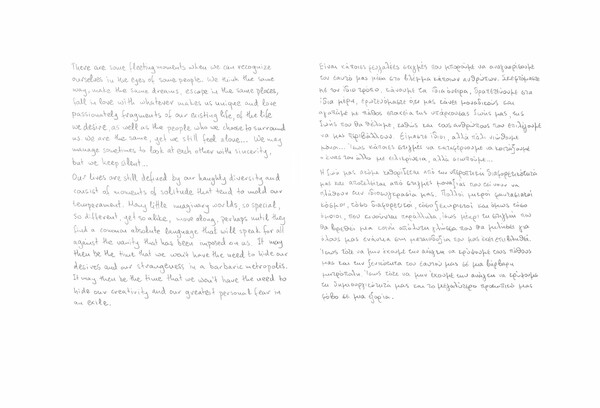 There are some fleeting moments when we can recognize
ourselves in the eyes of some people. We think the same
way, make the same dreams, escape in the same places,
fall in love with whatever makes us unique and love
passionately fragments of our existing life, of the life
we desire as well as the people who we choose to surround
us. We are the same, yet we still feel alone... We may
manage sometimes to look at each other with sincerity,
but we keep silent...
Our lives are still defined by our haughty diversity and
consist of moments of solitude that tend to mold our
temperament. Many little imaginary worlds, so special,
so different, yet so alike, move along, perhaps until they
find a common absolute language that will speak for all
against the vanity that has been imposed on us. It may
then be the time that we won't have the need to hide our
desires and our strangeness in a barbaric metropolis.
It may then be the time that we won't have the need to
hide our creativity and our greatest personal fear in
an exile.
Είναι κάποιες στιγμές που μπορούμε να αναγνωρίσουμε
τον εαυτό μας μέσα στο βλέμμα κάποιων ανθρώπων. Σκεφτόμαστε
με τον ίδιο τρόπο, κάνουμε τα ίδια όνειρα, δραπετεύουμε στα
ίδια μέρη, ερωτευόμαστε ότι μας κάνει μοναδικούς και
αγαπάμε με πάθος στοιχεία της υπάρχουσας ζωής μας, της
ζωής που θα θέλαμε, καθώς και τους ανθρώπους που επιλέγουμε
να μας περιβάλλουν. Είμαστε ίδιοι, αλλά πάλι νιώθουμε
μόνοι... Ίσως κάποιες στιγμές να καταφέρνουμε να κοιτάξουμε
ο ένας τον άλλο με ειλικρίνεια, αλλά σιωπούμε...
Η ζωή μας ακόμα καθορίζεται από την διαφορετικότητά
μας και αποτελείται από στιγμές μοναξιάς που
την ιδιοσυγκρασία μας. Πολλοί μικροί φανταστικοί
κόσμοι, τόσο διαφορετικοί, τόσο ξεχωριστοί και όμως τόσο
όμοιοι, που κινούνται παράλληλα, ίσως μέχρι τη στιγμή που
θα βρεθεί μια κοινή απόλυτη γλώσσα που θα μιλήσει για
όλους μας ενάντια στη ματαιοδοξία που μας έχει επιβληθεί.
Ίσως τότε να μην έχουμε την ανάγκη να κρύψουμε τους πόθους
μας και την του εαυτού μας σε μια βάρβαρη
μητρόπολη. Ίσως τότε να μην έχουμε την ανάγκη να κρύψουμε
τη δημιουργικότητά μας και το μεγαλύτερο προσωπικό μας
φόβο σε μια εξορία.